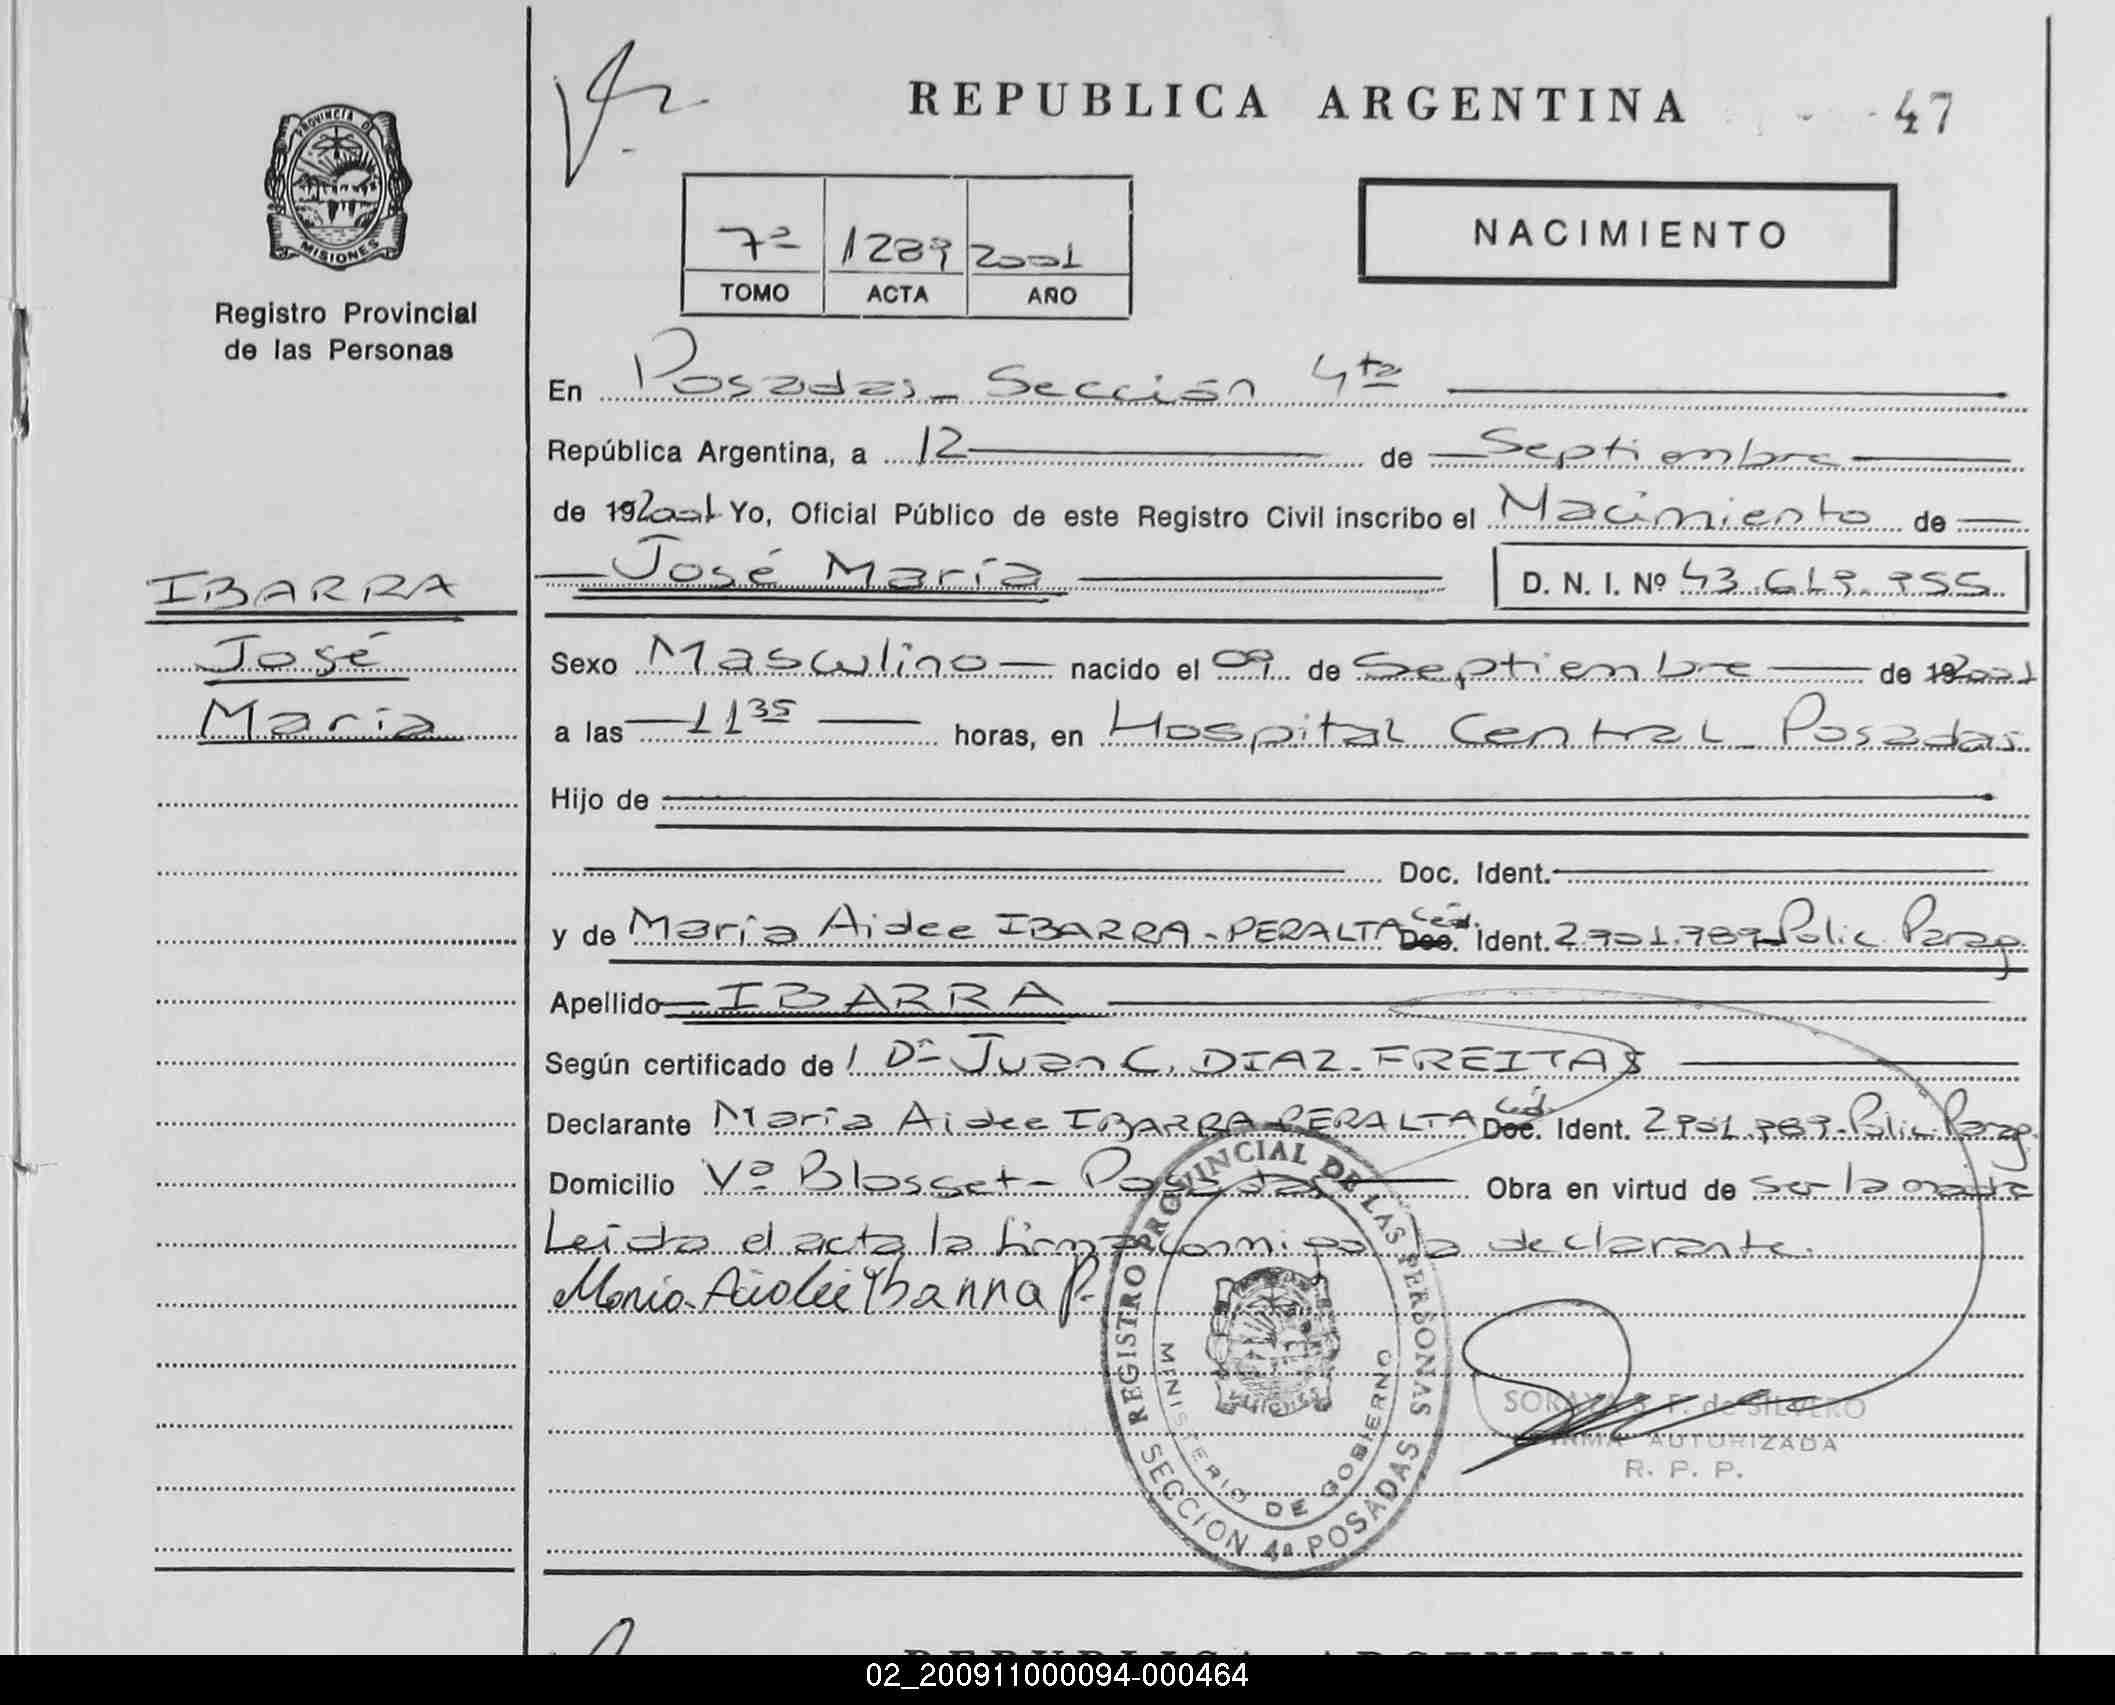 REPUBLICA ARGENTINA 47
PROVINCIA DE
MISIONES
Registro Provincial
de las Personas
7º 1289 2001
TOMO ACTA AÑO
NACIMIENTO
En Posadas - Sección 4ta
República Argentina, a 12 de Septiembre
de 192001 Yo, Oficial Público de este Registro Civil inscribo el Nacimiento de
IBARRA
José
María
José María D. N. I. Nº 43.619.955
Sexo Masculino nacido el 09 de Septiembre de 192001
a las 11 35 horas, en Hospital Central - Posadas
Hijo de
Doc. Ident.
y de María Aidee IBARRA - PERALTA Céd. Doc. Ident. 2.901.789 Polic. Parag.
Apellido IBARRA
Según certificado de Dr Juan C. DIAZ - FREITAS
Declarante María Aidee IBARRA - PERALTA Céd. Doc. Ident. 2.901.789 - Polic. Parag.
Domicilio Vº Blosset - Posadas Obra en virtud de ser la madre
Leída el acta la firma conmigo la declarante.
Maria Aidee Ybarra P.
REGISTRO PROVINCIAL DE LAS PERSONAS
MENISTERIO DE GOBIERNO
SECCION 4ª POSADAS
SORAYA S. F. de SILVERO
FIRMA AUTORIZADA
R. P. P.
REPUBLICA ARGENTINA
02_200911000094-000464